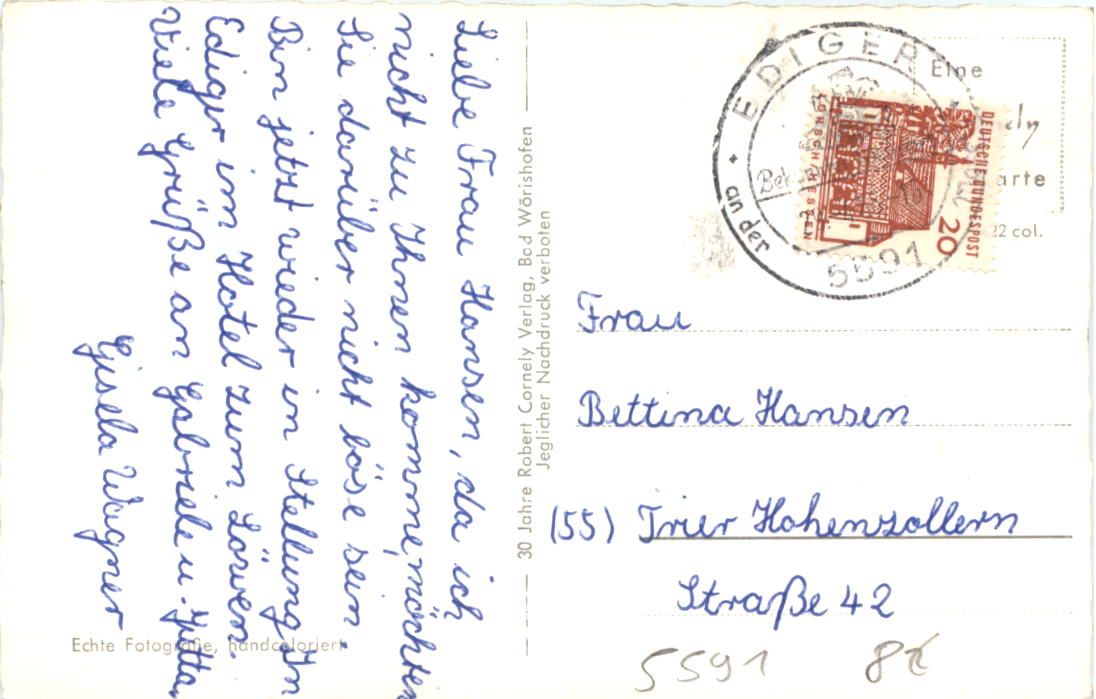 Liebe Frau Hansen, da ich
nicht zu Ihnen komme, möchten
Sie darüber nicht böse sein.
Bin jetzt wieder in Stellung In
Ediger im Hotel zum Löwen.
Viele Grüße an Gabriele u. Jutta,
Gisela Wagner
Echte Fotografie, handcoloriert
30 Jahre Robert Cornely Verlag, Bad Wörishofen
Jeglicher Nachdruck verboten
EDIGER
an der
5591
DEUTSCHE BUNDESPOST
20
LORSCH/HESSEN
Eine
arte
22 col.
Frau
Bettina Hansen
(55) Trier Hohenzollern
Straße 42
5591 8€